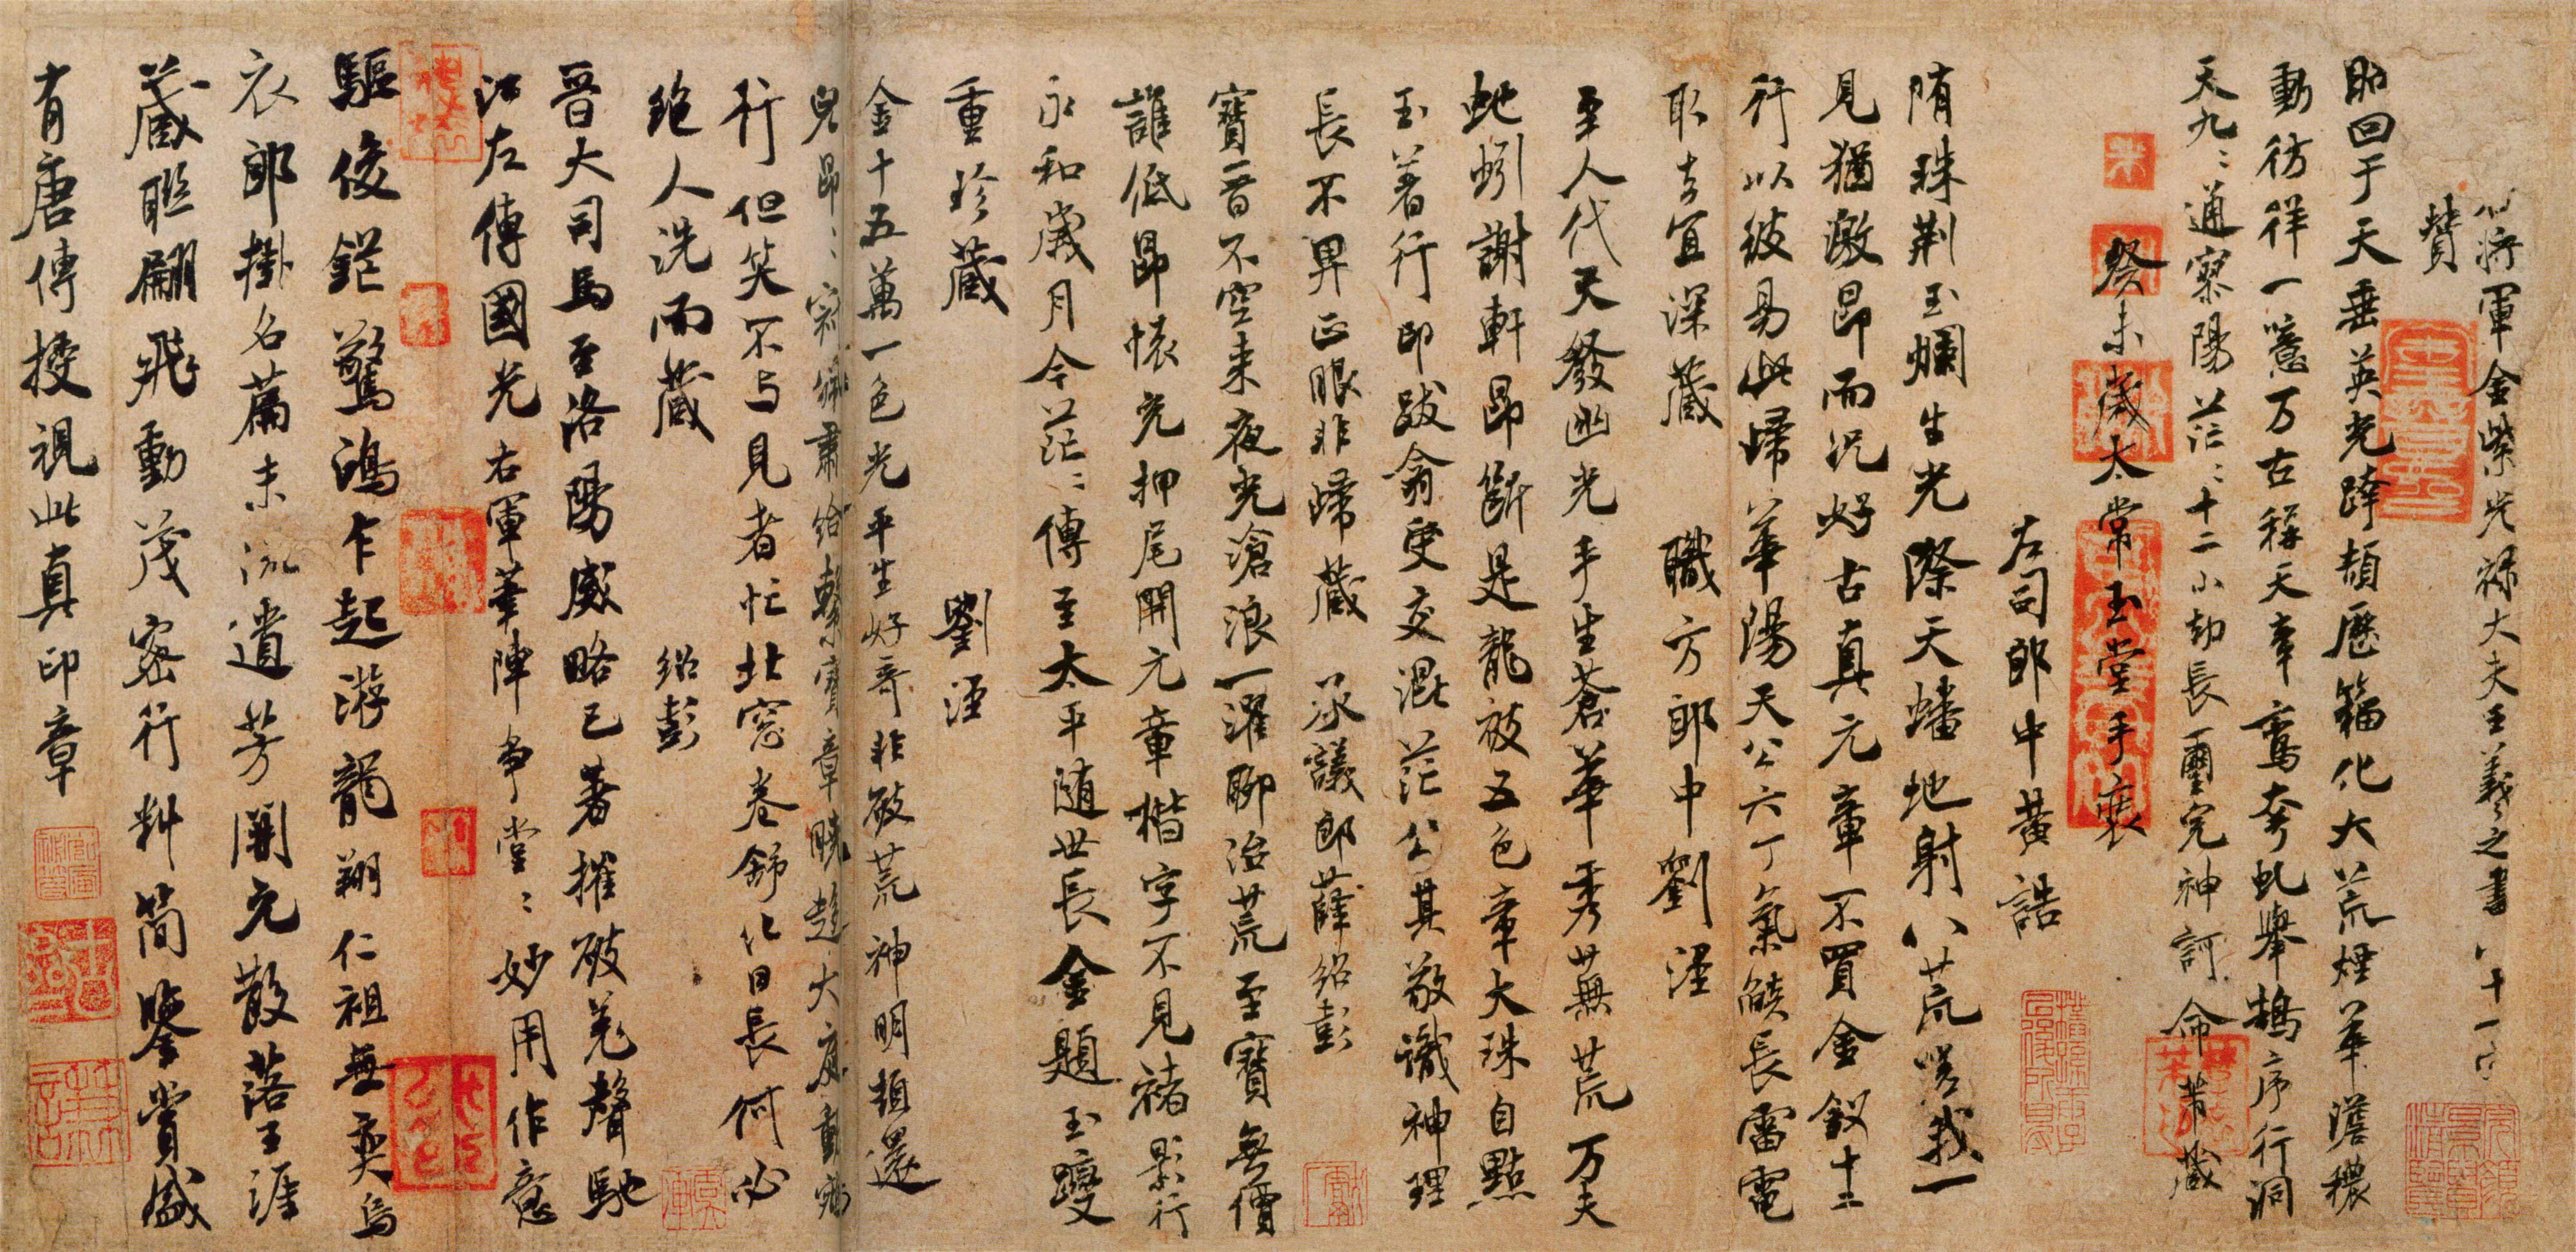 將軍金紫光祿大夫王羲之書八十一字
贊
昭回于天垂英光跨頡歷籀化大荒煙華澹穠
動彷徉一噫万古稱天章鸞夸虬舉鵠序行洞
天九〻通寥陽茫〻十二小劫長璽完神訶命芾藏
癸未歲太常玉堂手裝
左司郎中黃誥
隋珠荊玉爛生光際天蟠地射八荒嗟我一
見猶激昂而況好古真元章不買金釵十二
行以彼易此歸華陽天公六丁氣燄長雷電
取去宜深藏 職方郎中劉涇
至人代天發幽光手生蒼華秀蕪荒万夫
虵蚓謝軒昂斷是龍被五色章大珠自點
玉著行印跋龠受交混茫公其敬識神理
長不畀正眼非歸藏 承議郎薛紹彭
寶晉不空來夜光滄浪一濯聊治荒至寶無價
誰低昂懷充押尾開元章楷字不見褚影行
永和歲月今茫〻傳至太平隨世長金題玉躞
重珍藏 劉涇
金十五萬一色光平生好奇非破荒神明頓還
兒昂〻肅給繫寶章曉趨大庭
行但笑不与見者忙北窓卷舒化日長何必
絶人洗而藏 紹彭
晉大司馬至洛陽威略已著摧破羌聲馳
江左傳國光右軍筆陣爭堂〻妙用作意
驅俊鋩驚鴻乍起游龍翔仁祖無奕烏
衣郎掛名篇末流遺芳開元散落王涯
藏聯翩飛動茂密行料簡鑒賞盛
有唐傳授視此真印章